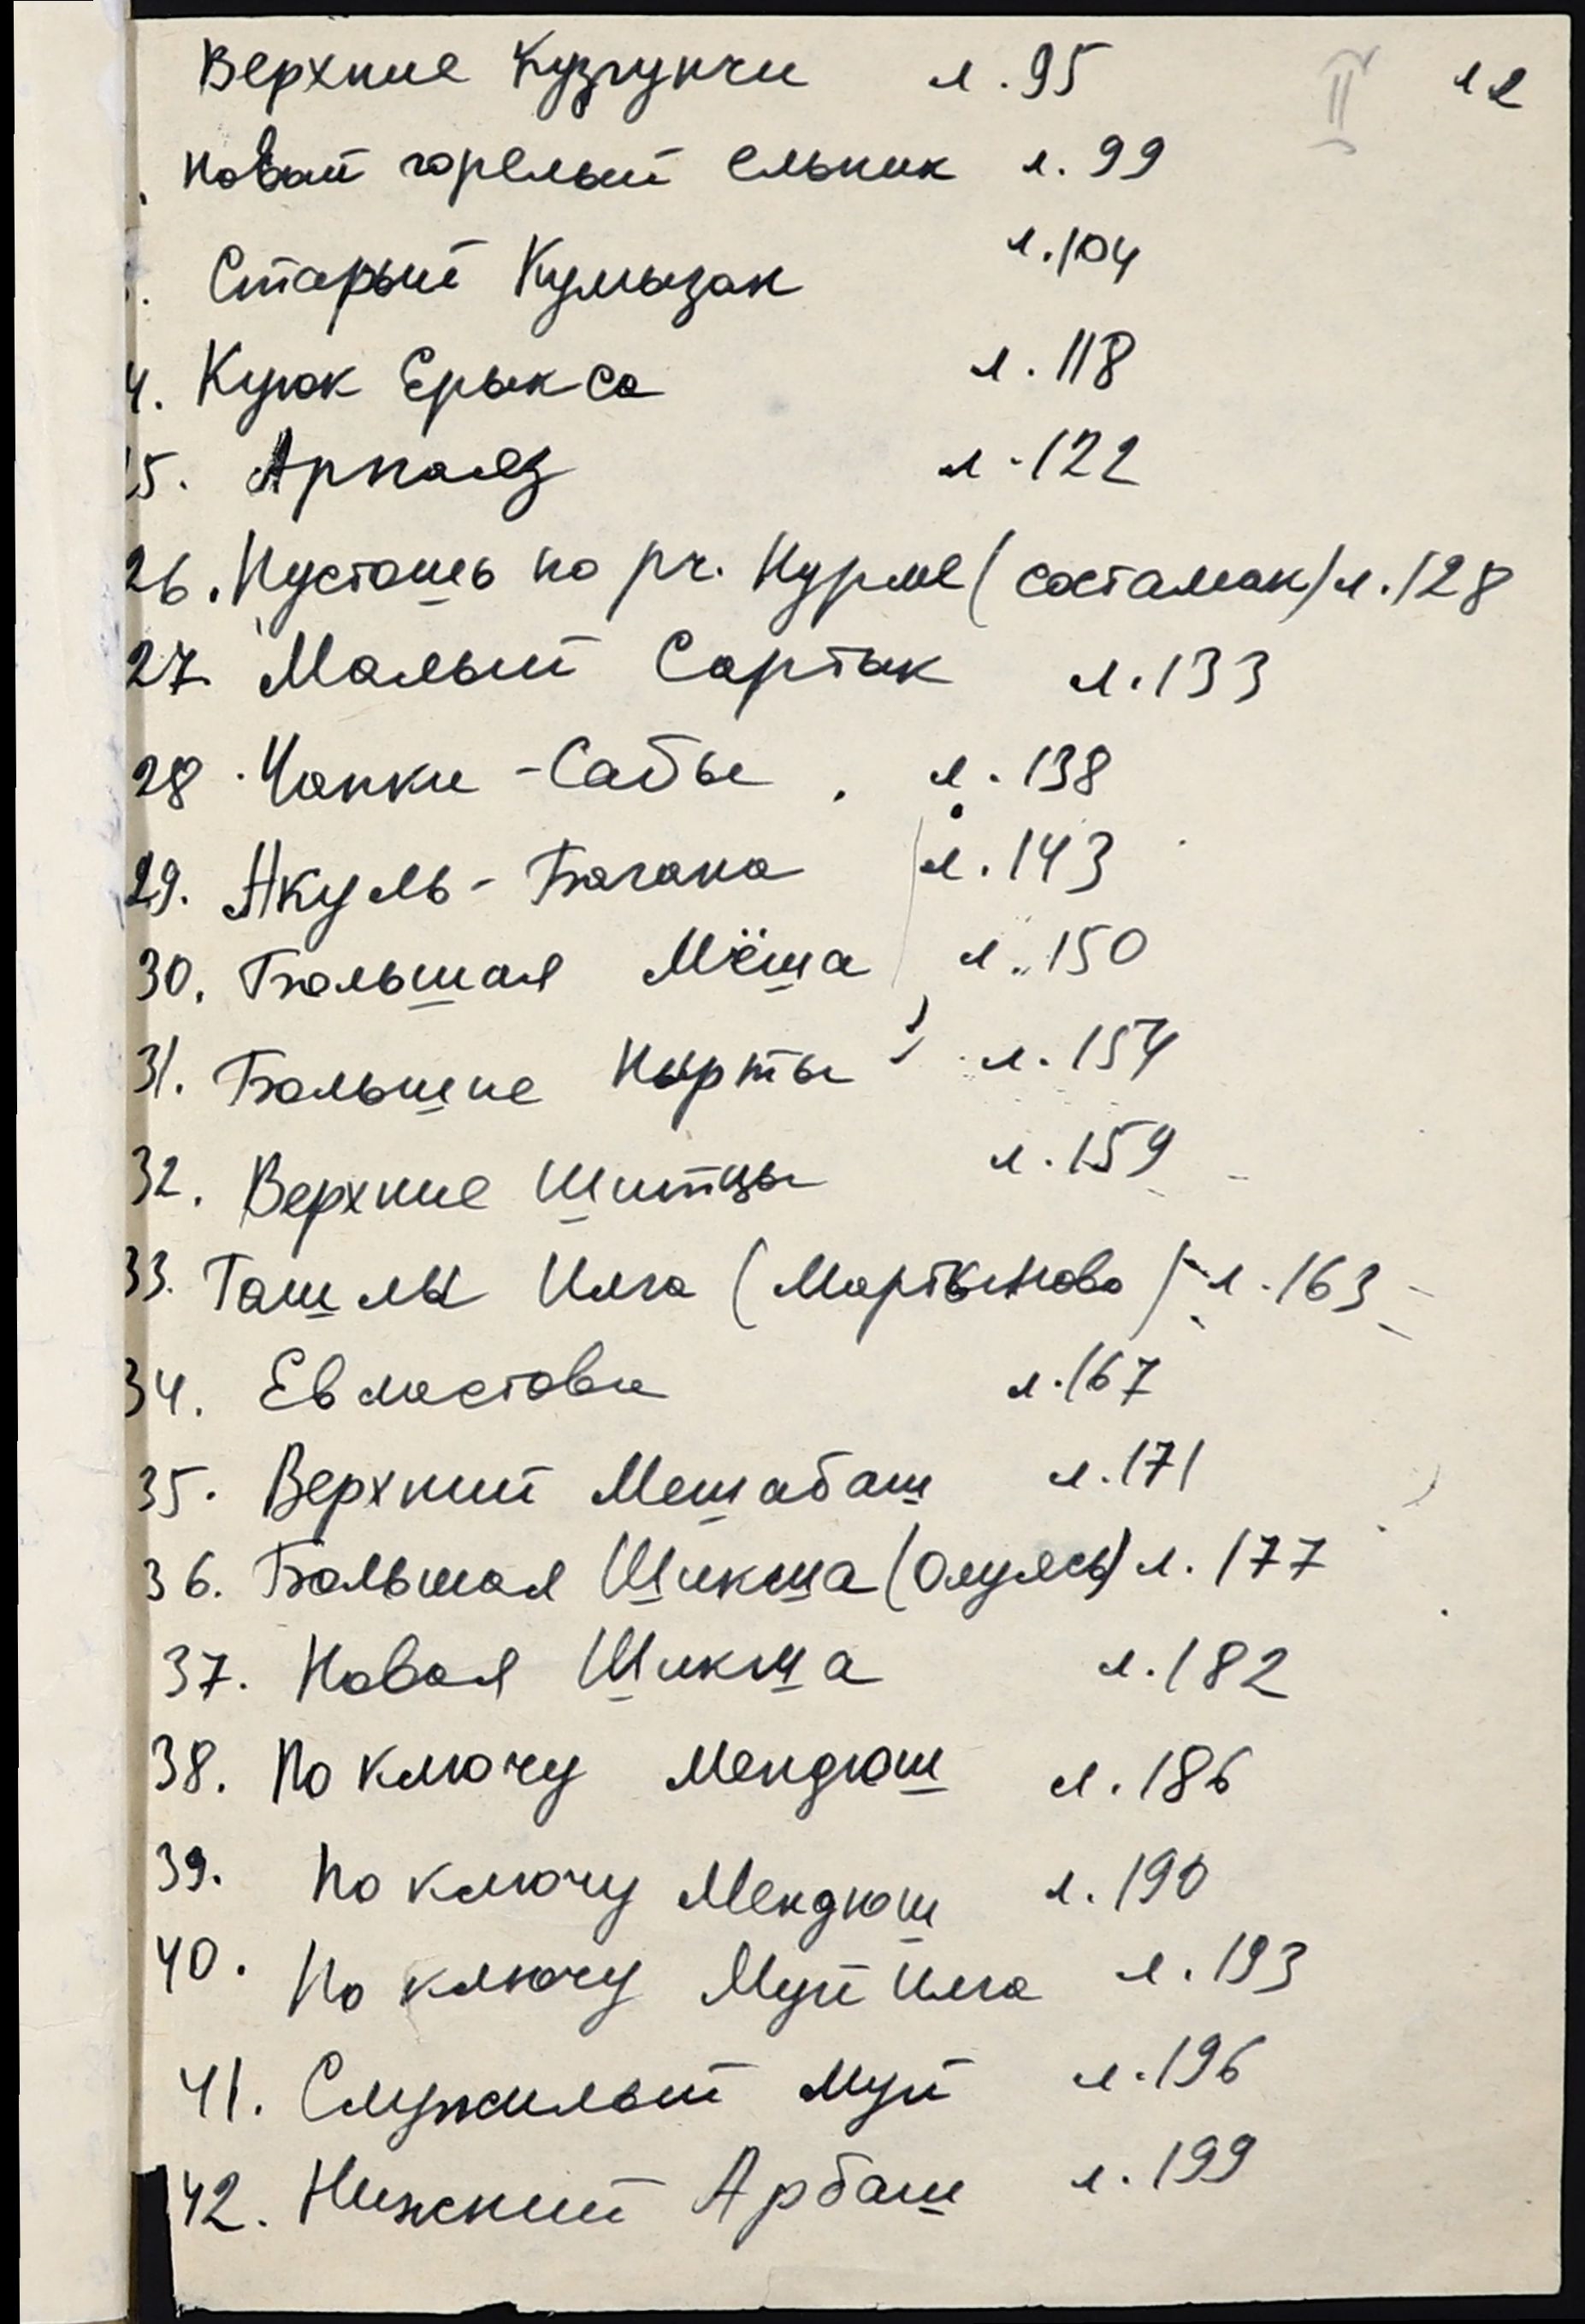 Верхние Кузгунчи л. 95 II л 2
. Новый горелый ельник л. 99
. Старый Кумызан л. 104
4. Куюк Ерыкса л. 118
5. Арпаяз л. 122
26. Пустошь по рч. Нурме (состамак) л. 128
27. Малый Сартык л. 133
28. Чапки-Сабы. л. 138
29. Акуль-Багана л. 143
30. Большая Мёша л. 150
31. Большие Нырты л. 154
32. Верхние Шитцы л. 159
33. Ташлы Илга (Мартьяново) л. 163
34. Евластавы л. 167
35. Верхний Мешабаш л. 171
36. Большая Шикша (Олуясы) л. 177
37. Новая Шикша л. 182
38. По ключу Мендюш л. 186
39. По ключу Мендюш л. 190
40. По ключу Муй Илга л. 193
41. Служилый Муй л. 196
42. Нижний Арбаш л. 199